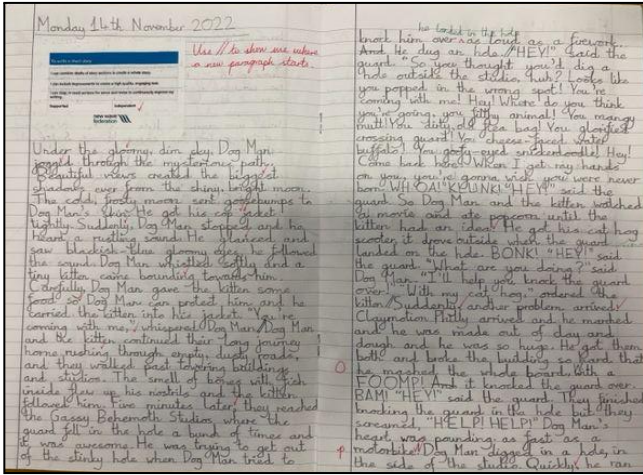 Monday 14th November 2022
Use // to show me where
a new paragraph starts.
To write a short story
Supported Independent
new wave
federation
Under the gloomy, dim sky, Dog Man
jogged through the mysterious path.
Beautiful views created the biggest
shadows ever from the shiny, bright moon.
The cold, frosty moon sent goosebumps to
Dog Man's skin. He got his cop jacket
tightly. Suddenly, Dog Man stopped and he
heard a rustling sound. He glanced and
saw blackish-blue glooming eyes, he followed
the sound. Dog Man whistled softly and a
tiny kitten came bounding towards him.
Carefully, Dog Man gave the kitten some
food so Dog Man can protect him and he
carried the kitten into his jacket. "You're
coming with me," whispered Dog Man.//Dog Man
and the kitten continued their long journey
home, rushing through empty, dusty roads,
and they walked past towering buildings
and studios. The smell of bones with fish
inside flew up his nostrils and the kitten
followed him. Five minutes later, they reached
the Gassy Behemoth Studios where the
guard fell in the hole a bunch of times and
it was awesome. He was trying to get out
of the stinky hole when Dog Man tried to
he landed in the hole
knock him over as loud as a firework.
And He dug an hole.//"HEY!" said the
guard. "So you thought you'd dig a
hole outside the studio, huh? Looks like
you popped in the wrong spot! You're
coming with me! Hey! Where do you think
you're going, you filthy animal! You mangy
mutt! You dirty old flea bag! You glorified
crossing guard! You cheese-faced water
buffalo! You goofy-eyed snickerdoodle! Hey!
Come back here! When I get my hands
on you, you're gonna wish you were never
born-WHOA!" KPLUNK! "HEY!" said the
guard. So Dog Man and the kitten watched
a movie and ate popcorn until the
kitten had an idea. He got his cat hog
scooter, it drove outside when the guard
landed on the hole. BONK! "HEY!" said
the guard. "What are you doing?" said
Dog Man. "I'll help you knock the guard
over! With my cat hog," ordered the
kitten.//Suddenly, another problem arrived!
Claymotion Philly arrived and he marched
and he was made out of clay and
dough and he was so huge. He got them
both and broke the building so hard that
he mashed the whole board, with a
FOOMP! And it knocked the guard over.
BAM! "HEY!" said the guard. They finished
knocking the guard in the hole but they
screamed, "HELP! HELP!" Dog Man's
heart was pounding as fast as a
motorbike.//Dog Man digged in a hole, in
the side of the studio. Quickly, he ran